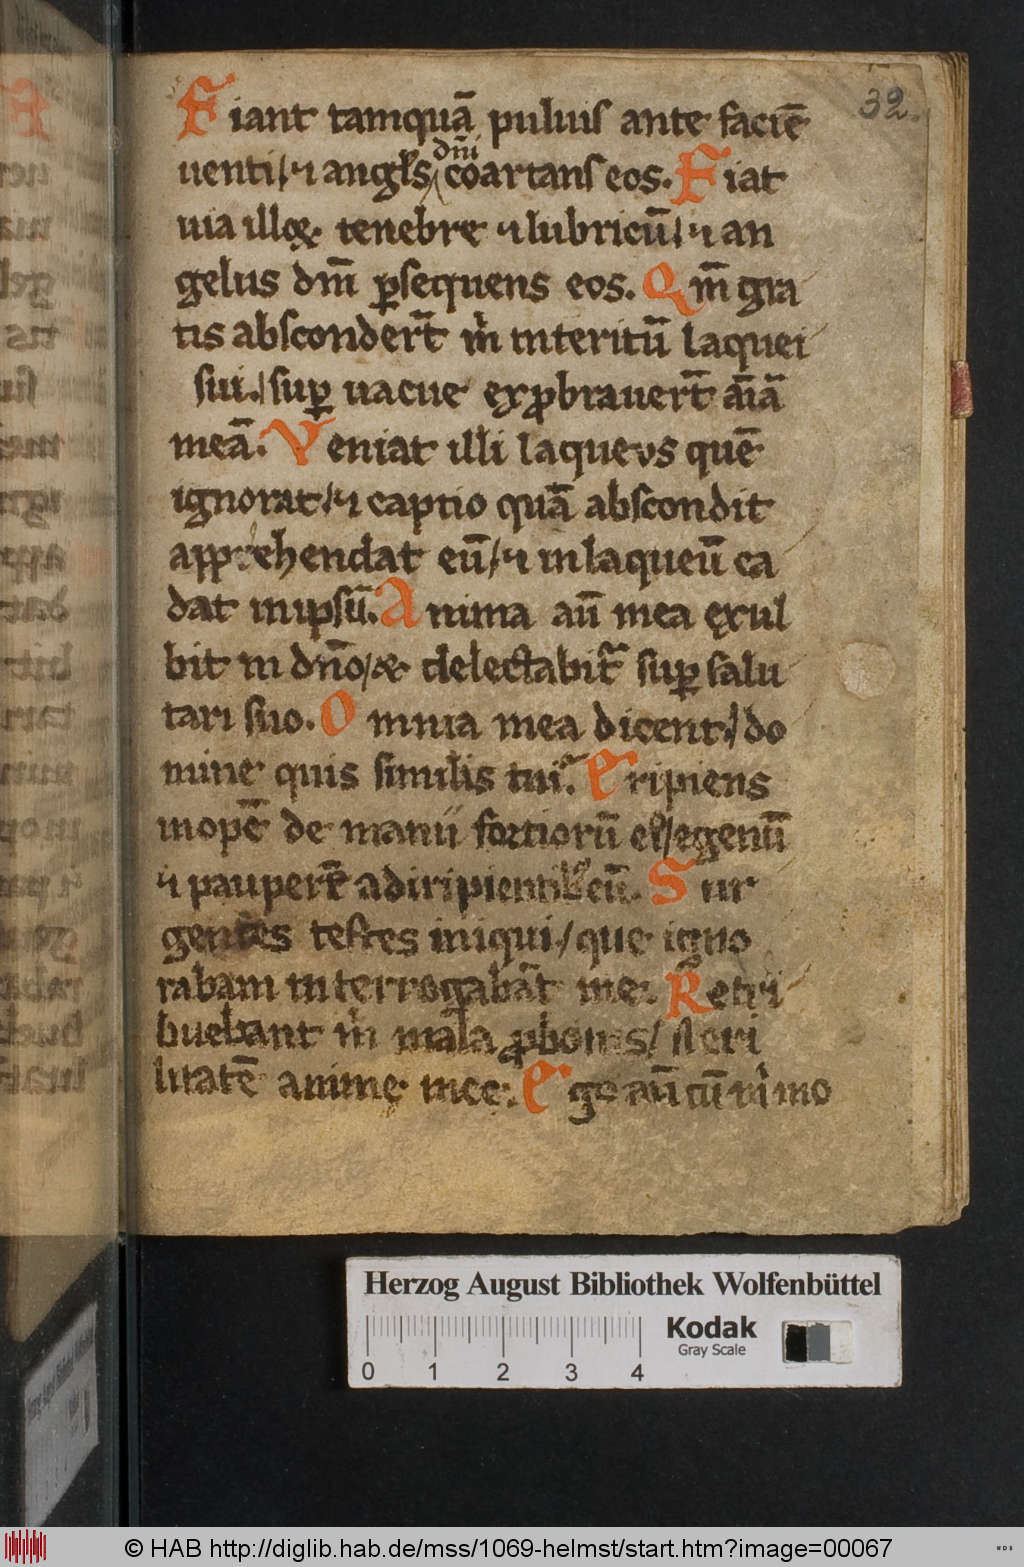 32.
Fiant tamquā puluis ante faciē
uenti / ⁊ angl̄s dn̄i coartans eos. Fiat
uia illoꝝ tenebre ⁊ lubricū / ⁊ an
gelus dn̄i ꝑsequens eos. Qm̄ gra
tis absconder̄t m̄ interitū laquei
sui. / suꝑ uacue exꝓbrauer̄t aīā
meā. Veniat illi laqueus quē
ignorat / ⁊ captio quā abscondit
apprehendat eū / ⁊ in laqueū ca
dat in ipsū. Anima aū mea exul
bit in dn̄o / & delectabit̄ suꝑ salu
tari suo. Omnia mea dicent / do
mine quis similis tui. Eripiens
inopē de manu fortiorū eꝰ / egenū
⁊ pauperē a diripientibꝰ eū. Sur
gentes testes iniqui / que igno
rabam interrogabāt me. Retri
buebant m̄ mala ꝓ bonis / steri
litatē anime mee. Ego aū cū m̄ mo
Herzog August Bibliothek Wolfenbüttel
Kodak
Gray Scale
0 1 2 3 4
© HAB http://diglib.hab.de/mss/1069-helmst/start.htm?image=00067